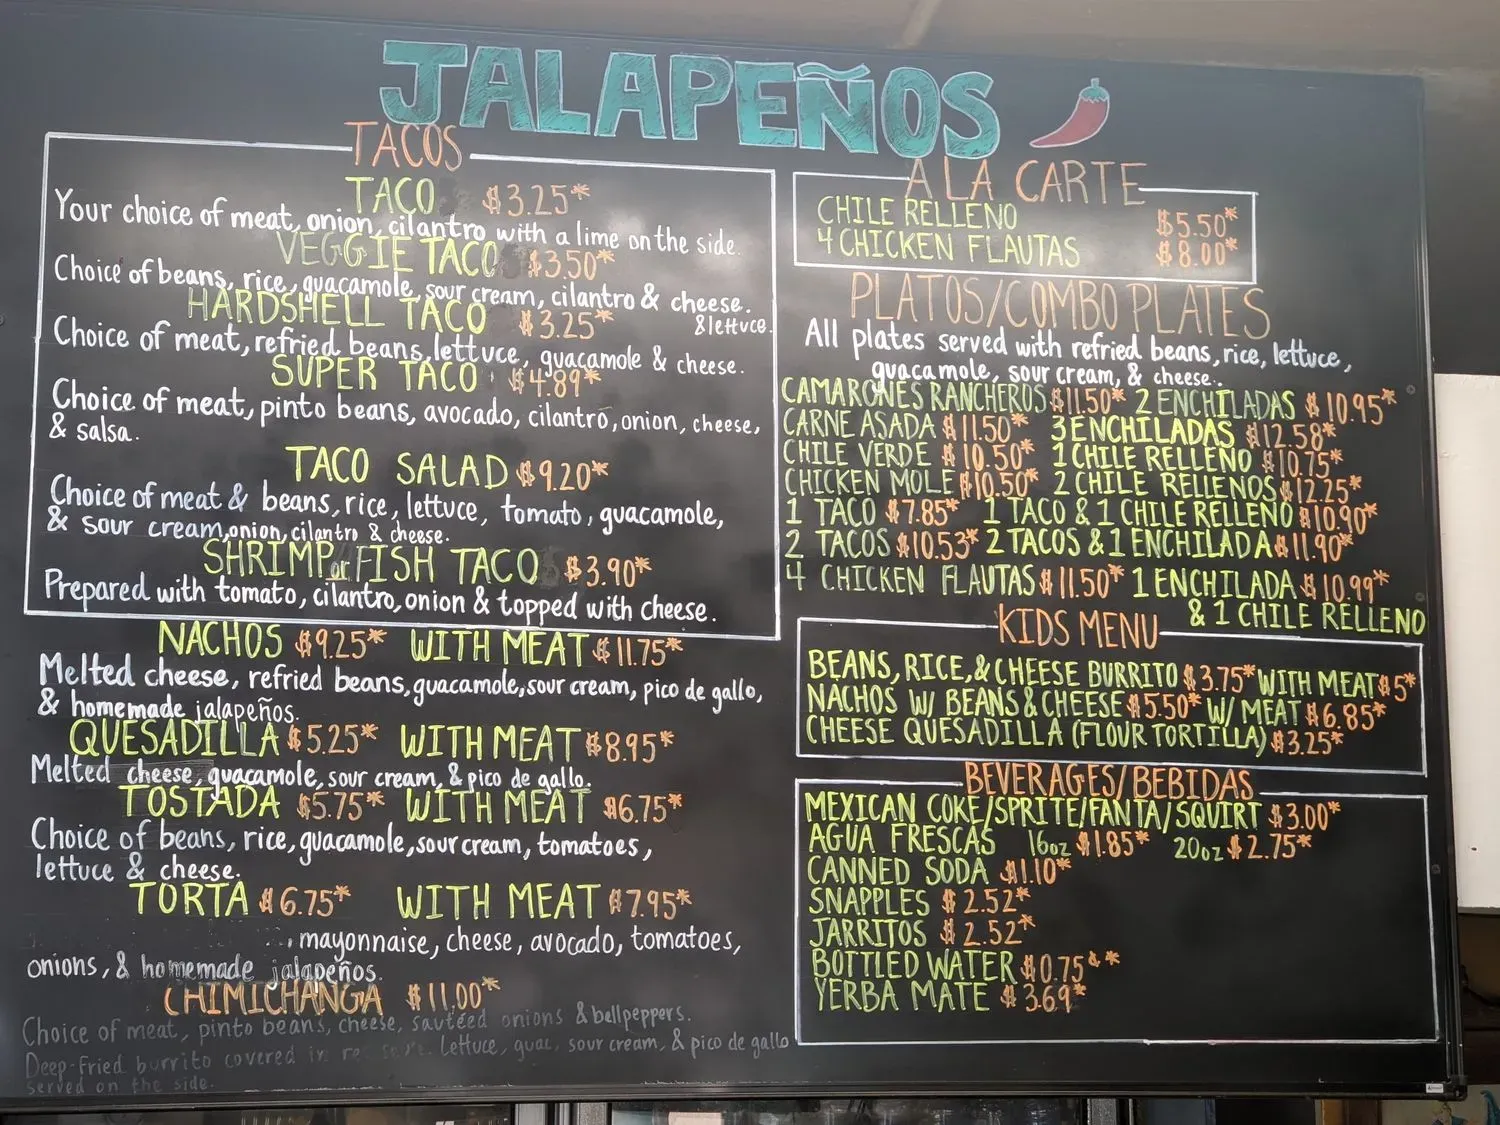 JALAPEÑOS
TACOS
TACO $3.25*
Your choice of meat, onion, cilantro with a lime on the side.
VEGGIE TACO $3.50*
Choice of beans, rice, guacamole, sour cream, cilantro & cheese.
& lettuce.
HARDSHELL TACO $3.25*
Choice of meat, refried beans, lettuce, guacamole & cheese.
SUPER TACO $4.89*
Choice of meat, pinto beans, avocado, cilantro, onion, cheese,
& salsa.
TACO SALAD $9.20*
Choice of meat & beans, rice, lettuce, tomato, guacamole,
& sour cream, onion, cilantro & cheese.
SHRIMP or FISH TACO $3.90*
Prepared with tomato, cilantro, onion & topped with cheese.
NACHOS $9.25* WITH MEAT $11.75*
Melted cheese, refried beans, guacamole, sour cream, pico de gallo,
& homemade jalapeños.
QUESADILLA $5.25* WITH MEAT $8.95*
Melted cheese, guacamole, sour cream, & pico de gallo.
TOSTADA $5.75* WITH MEAT $6.75*
Choice of beans, rice, guacamole, sour cream, tomatoes,
lettuce & cheese.
TORTA $6.75* WITH MEAT $7.95*
mayonnaise, cheese, avocado, tomatoes,
onions, & homemade jalapeños.
CHIMICHANGA $11.00*
Choice of meat, pinto beans, cheese, sautéed onions & bellpeppers.
Deep-fried burrito covered in Lettuce, guac, sour cream, & pico de gallo
served on the side.
A LA CARTE
CHILE RELLENO $5.50*
4 CHICKEN FLAUTAS $8.00*
PLATOS/COMBO PLATES
All plates served with refried beans, rice, lettuce,
guacamole, sour cream, & cheese.
CAMARONES RANCHEROS $11.50* 2 ENCHILADAS $10.95*
CARNE ASADA $11.50* 3 ENCHILADAS $12.58*
CHILE VERDE $10.50* 1 CHILE RELLENO $10.75*
CHICKEN MOLE $10.50* 2 CHILE RELLENOS $12.25*
1 TACO $7.85* 1 TACO & 1 CHILE RELLENO $10.90*
2 TACOS $10.53* 2 TACOS & 1 ENCHILADA $11.90*
4 CHICKEN FLAUTAS $11.50* 1 ENCHILADA $10.99*
& 1 CHILE RELLENO
KIDS MENU
BEANS, RICE, & CHEESE BURRITO $3.75* WITH MEAT $5*
NACHOS W/ BEANS & CHEESE $5.50* W/ MEAT $6.85*
CHEESE QUESADILLA (FLOUR TORTILLA) $3.25*
BEVERAGES/BEBIDAS
MEXICAN COKE/SPRITE/FANTA/SQUIRT $3.00*
AGUA FRESCAS 16oz $1.85* 20oz $2.75*
CANNED SODA $1.10*
SNAPPLES $2.52*
JARRITOS $2.52*
BOTTLED WATER $0.75**
YERBA MATE $3.69*